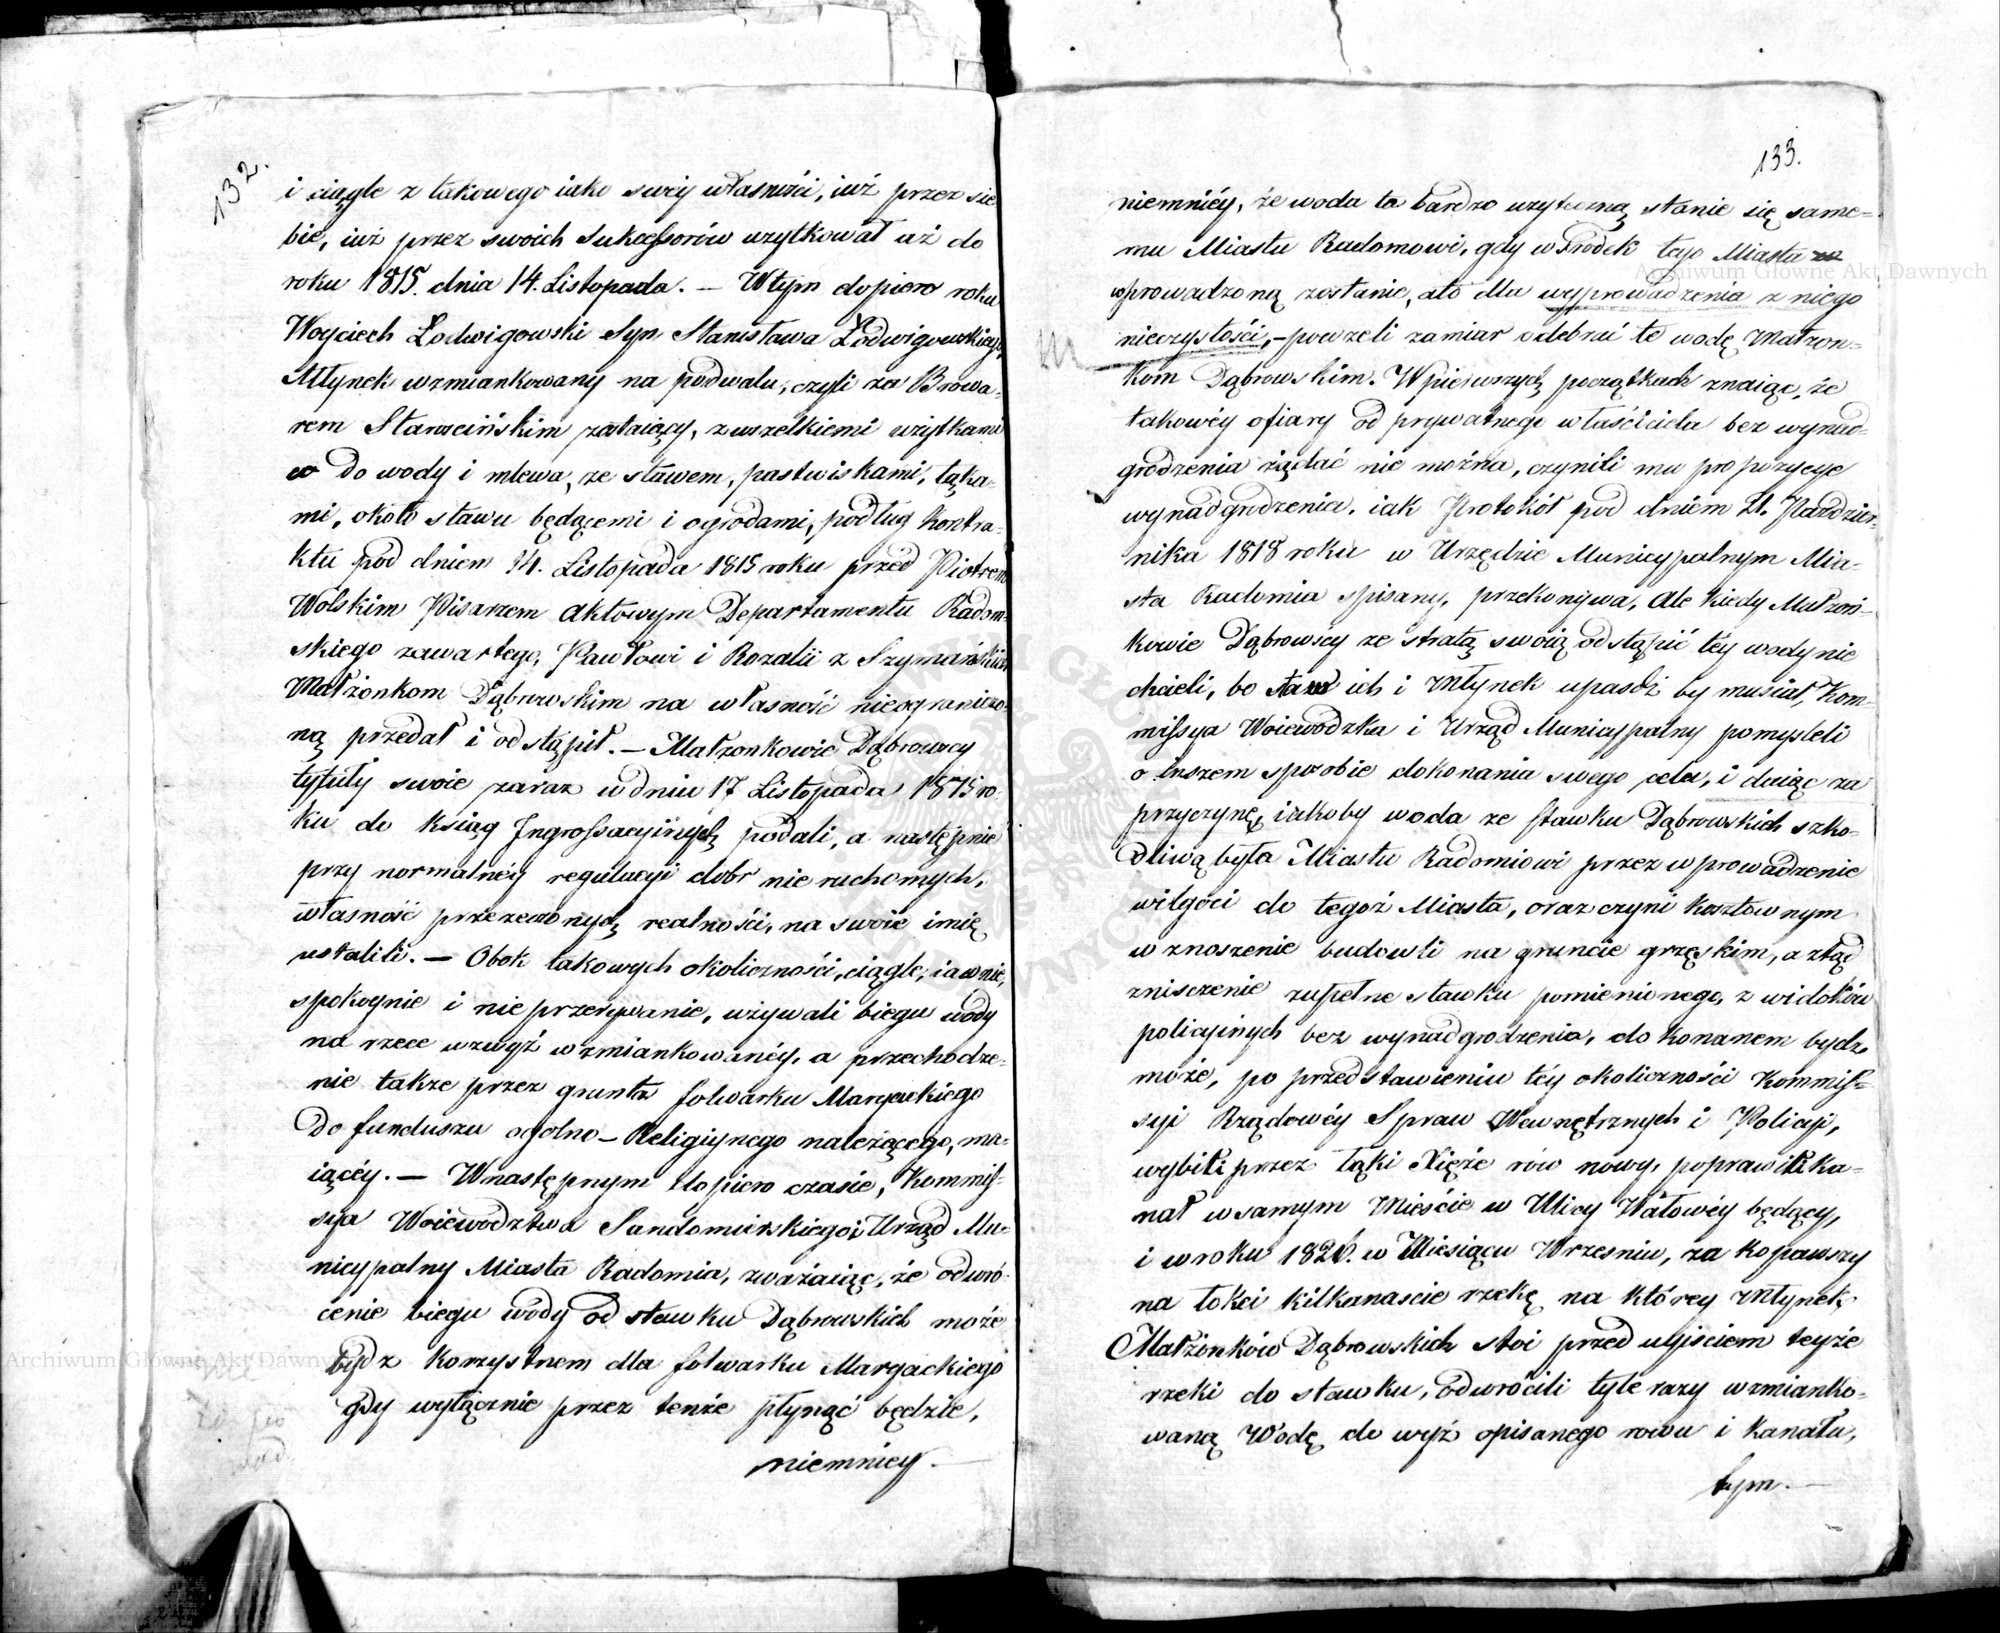 132.
i ciągle z takowego iako swéy własności, iuż przez sie
bie, iuż przez swoich Sukcessorów uzytkował aż do
roku 1815. dnia 14. Listopada. — Wtym dopiero roku
Woyciech Łodwigowski Syn Stanisława Łodwigowskiego,
Młynek wzmiankowany na podwalu, czyli za Browa-
rem Starościńskim zostaiący, z wszelkiemi użytkami
do wody i mlewa, ze stawem, pastwiskami, łąka-
mi, około stawu będącemi i ogrodami, podług Kontra-
ktu pod dniem 14. Listopada 1815 roku przed Piotrem
Wolskim Pisarzem Aktowym Departamentu Radom-
skiego zawartego, Pawłowi i Rozalii z Szymańskich
Małżonkom Dąbrowskim na własność nieograniczo-
ną przedał i odstąpił. — Małżonkowie Dąbrowscy
tytuły swoie zaraz w dniu 17 Listopada 1815 ro-
ku do ksiąg Ingrossacyinych podali, a następnie
przy normalnéy regulacyi dobr nieruchomych,
własność przerzeczonych realności, na swoie imię
ustalili. — Obok takowych okoliczności, ciągle, iawnie,
spokoynie i nieprzerywanie, używali biegu wody
na rzece wzwyż wzmiankowanéy, a przechodze-
nie także przez grunta folwarku Maryackiego
Do funduszu ogolno-Religiynego należącego, ma-
iącéy. — Wnastępnym dopiero czasie, Kommis-
sya Woiewództwa Sandomierskiego i Urząd Mu-
nicypalny Miasta Radomia, zważaiąc, że odwró-
cenie biegu wody od stawku Dąbrowskich może
bydz korzystnem dla folwarku Margackiego
gdy wyłącznie przez tenże płynąć będzie,
niemnicy. —
133.
niemniéy, że woda ta bardzo uzyteczną stanie się same-
mu Miastu Radomowi, gdy w środek tego Miasta
wprowadzoną zostanie, ato dla wyprowadzenia z niego
nieczystości, – powzieli zamiar odebrać te wodę Małżon-
kom Dąbrowskim. W pierwszych początkach znaiąc, że
takowéy ofiary od prywatnego właściciela bez wynad-
grodzenia żądać nie można, czynili mu propozycye
wynadgrodzenia, iak Protokół pod dniem 21. Paździer-
nika 1818 roku w Urzędzie Municypalnym Mia-
sta Radomia spisany, przekonywa, Ale kiedy Małżon-
kowie Dąbrowscy ze stratą swoią odstąpić téy wody nie
chcieli, bo staw ich i Młynek upaśdź by musiał, Kom-
missya Woiewodzka i Urząd Municypalny pomysleli
o inszem sposobie dokonania swego celu, i daiąc za
przyczynę, iakoby woda ze stawku Dąbrowskich szko-
dliwą była Miastu Radomiowi przez wprowadzenie
wilgoci do tegoż Miasta, oraz czyni kosztownym
wznoszenie budowli na gruncie grzęskim, a ztąd
zniszczenie zupełne stawku pomienionego, z widoków
policyinych bez wynadgrodzenia, dokonanem bydz
może, po przedstawieniu téy okoliczności Kommis-
syi Rządowéy Spraw Wewnętrznych i Policyi,
wybili przez łąki Xięże rów nowy, poprawili ka-
nał w samym Mieście w Ulicy Wałowéy będący,
i w roku 1826. w Miesiącu Wrzesniu, zakopawszy
na łokci kilkanascie rzekę na któréy Młynek
Małżonków Dąbrowskich stoi przed uyściem teyże
rzeki do stawku, odwrócili tyle razy wzmianko-
waną Wodę do wyż opisanego rowu i kanału,
tym. —
Archiwum Główne Akt Dawnych
Archiwum Główne Akt Dawnych